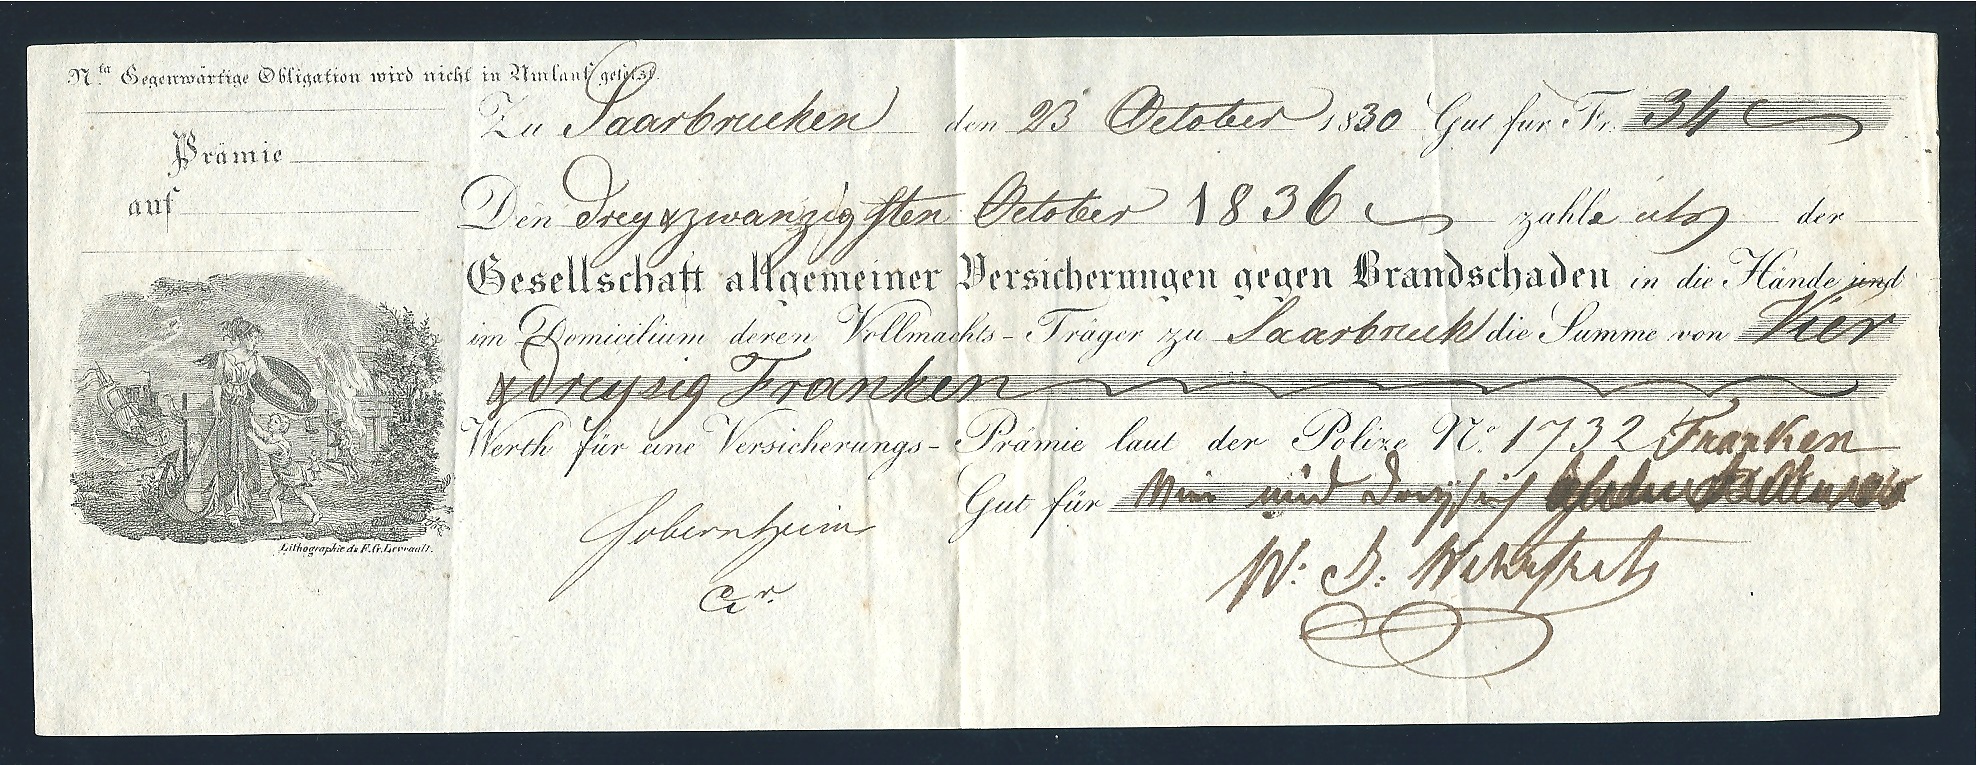 N.ta Gegenwärtige Obligation wird nicht in Umlauf gesetzt.
Zu Saarbrucken den 23 October 1830 Gut für Fr. 34
Prämie
auf
Den drey & zwanzigsten October 1836 zahle ich der
Gesellschaft allgemeiner Versicherungen gegen Brandschaden in die Hände und
im Domicilium deren Vollmachts-Träger zu Saarbruck die Summe von Vier
& dreysig Franken
Werth für eine Versicherungs-Prämie laut der Polize N.o 1732 Franken
Gut für und dreyssig
Sobernheim
W: B:
Cr.
Lithographie de F. G. Levrault.